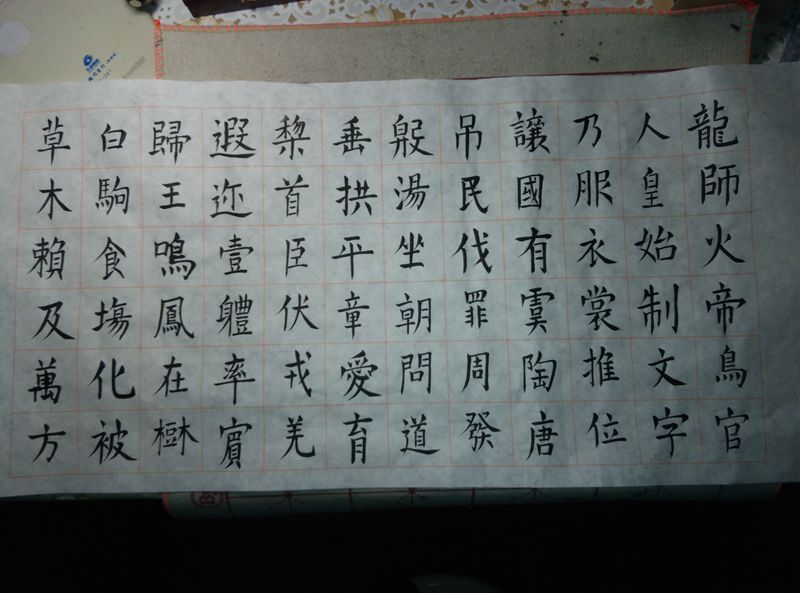 龍師火帝鳥官
人皇始制文字
乃服衣裳推位
讓國有虞陶唐
吊民伐罪周發
殷湯坐朝問道
垂拱平章愛育
黎首臣伏戎羌
遐迩壹軆率賓
歸王鳴鳳在樹
白駒食場化被
草木賴及萬方